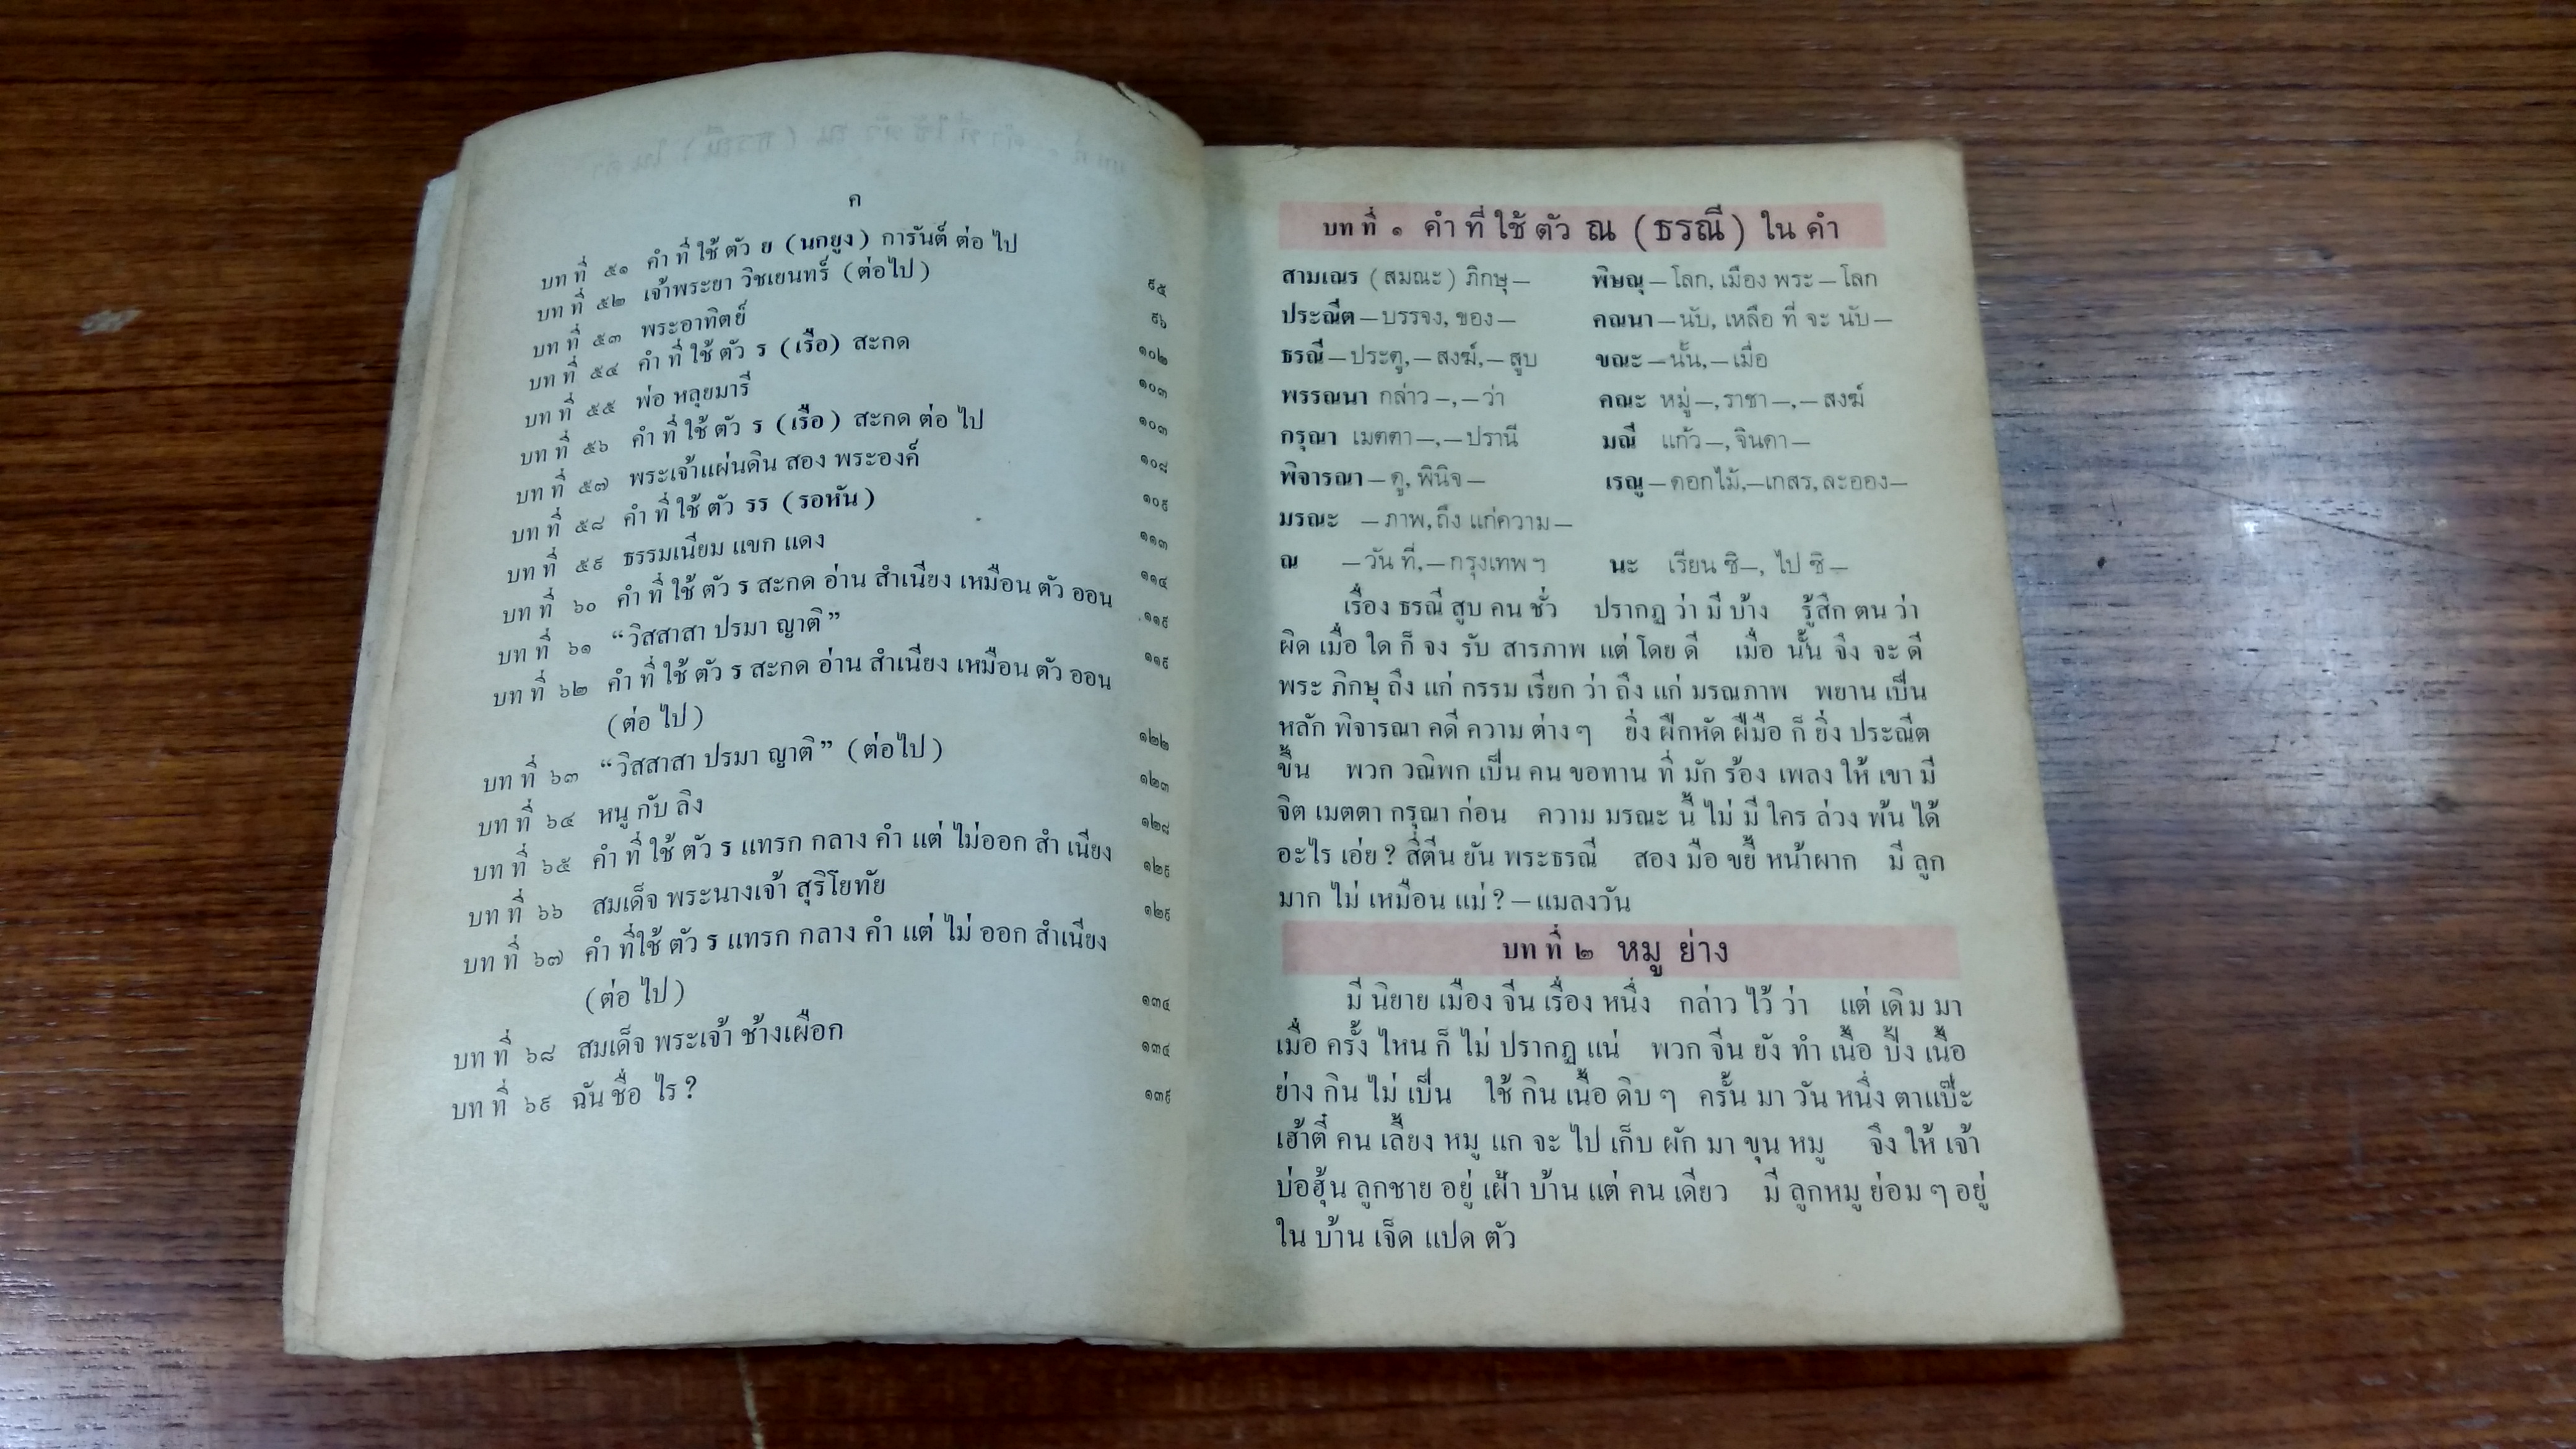 ค
บท ที่ ๕๑ คำ ที่ ใช้ ตัว ย (นกยูง) การันต์ ต่อ ไป ๙๕
บท ที่ ๕๒ เจ้าพระยา วิชเยนทร์ (ต่อไป) ๙๖
บท ที่ ๕๓ พระอาทิตย์ ๑๐๒
บท ที่ ๕๔ คำ ที่ ใช้ ตัว ร (เรือ) สะกด ๑๐๓
บท ที่ ๕๕ พ่อ หลุยมารี ๑๐๓
บท ที่ ๕๖ คำ ที่ ใช้ ตัว ร (เรือ) สะกด ต่อ ไป ๑๐๘
บท ที่ ๕๗ พระเจ้าแผ่นดิน สอง พระองค์ ๑๐๙
บท ที่ ๕๘ คำ ที่ ใช้ ตัว รร (รอหัน) ๑๑๓
บท ที่ ๕๙ ธรรมเนียม แขก แดง ๑๑๔
บท ที่ ๖๐ คำ ที่ ใช้ ตัว ร สะกด อ่าน สำเนียง เหมือน ตัว ออน ๑๑๙
บท ที่ ๖๑ “วิสสาสา ปรมา ญาติ” ๑๑๙
บท ที่ ๖๒ คำ ที่ ใช้ ตัว ร สะกด อ่าน สำเนียง เหมือน ตัว ออน
(ต่อ ไป) ๑๒๒
บท ที่ ๖๓ “วิสสาสา ปรมา ญาติ” (ต่อไป) ๑๒๓
บท ที่ ๖๔ หนู กับ ลิง ๑๒๘
บท ที่ ๖๕ คำ ที่ ใช้ ตัว ร แทรก กลาง คำ แต่ ไม่ออก สำ เนียง ๑๒๙
บท ที่ ๖๖ สมเด็จ พระนางเจ้า สุริโยทัย ๑๒๙
บท ที่ ๖๗ คำ ที่ใช้ ตัว ร แทรก กลาง คำ แต่ ไม่ ออก สำเนียง
(ต่อ ไป) ๑๓๔
บท ที่ ๖๘ สมเด็จ พระเจ้า ช้างเผือก ๑๓๔
บท ที่ ๖๙ ฉัน ชื่อ ไร ? ๑๓๙
บท ที่ ๑ คำ ที่ ใช้ ตัว ณ (ธรณี) ใน คำ
สามเณร (สมณะ) ภิกษุ— พิษณุ—โลก, เมือง พระ—โลก
ประณีต—บรรจง, ของ— คณนา—นับ, เหลือ ที่ จะ นับ—
ธรณี—ประตู,—สงฆ์,—สูบ ขณะ—นั้น,—เมื่อ
พรรณนา กล่าว—,—ว่า คณะ หมู่—,ราชา—,—สงฆ์
กรุณา เมตตา—,—ปรานี มณี แก้ว—, จินดา—
พิจารณา—ดู, พินิจ— เรณู—ดอกไม้,—เกสร, ละออง—
มรณะ —ภาพ, ถึง แก่ความ—
ณ —วัน ที่,—กรุงเทพ ฯ นะ เรียน ซิ—, ไป ซิ—
เรื่อง ธรณี สูบ คน ชั่ว ปรากฏ ว่า มี บ้าง รู้สึก ตน ว่า
ผิด เมื่อ ใด ก็ จง รับ สารภาพ แต่ โดย ดี เมื่อ นั้น จึง จะ ดี
พระ ภิกษุ ถึง แก่ กรรม เรียก ว่า ถึง แก่ มรณภาพ พยาน เป็น
หลัก พิจารณา คดี ความ ต่าง ๆ ยิ่ง ฝึกหัด ฝีมือ ก็ ยิ่ง ประณีต
ขึ้น พวก วณิพก เป็น คน ขอทาน ที่ มัก ร้อง เพลง ให้ เขา มี
จิต เมตตา กรุณา ก่อน ความ มรณะ นี้ ไม่ มี ใคร ล่วง พ้น ได้
อะไร เอ่ย ? สี่ตีน ยัน พระธรณี สอง มือ ขยี้ หน้าผาก มี ลูก
มาก ไม่ เหมือน แม่ ?—แมลงวัน
บท ที่ ๒ หมู ย่าง
มี นิยาย เมือง จีน เรื่อง หนึ่ง กล่าว ไว้ ว่า แต่ เดิม มา
เมื่อ ครั้ง ไหน ก็ ไม่ ปรากฏ แน่ พวก จีน ยัง ทำ เนื้อ ปิ้ง เนื้อ
ย่าง กิน ไม่ เป็น ใช้ กิน เนื้อ ดิบ ๆ ครั้น มา วัน หนึ่ง ตาแป๊ะ
เฮ้าตี๋ คน เลี้ยง หมู แก จะ ไป เก็บ ผัก มา ขุน หมู จึง ให้ เจ้า
บ่อฮุ้น ลูกชาย อยู่ เฝ้า บ้าน แต่ คน เดียว มี ลูกหมู ย่อม ๆ อยู่
ใน บ้าน เจ็ด แปด ตัว